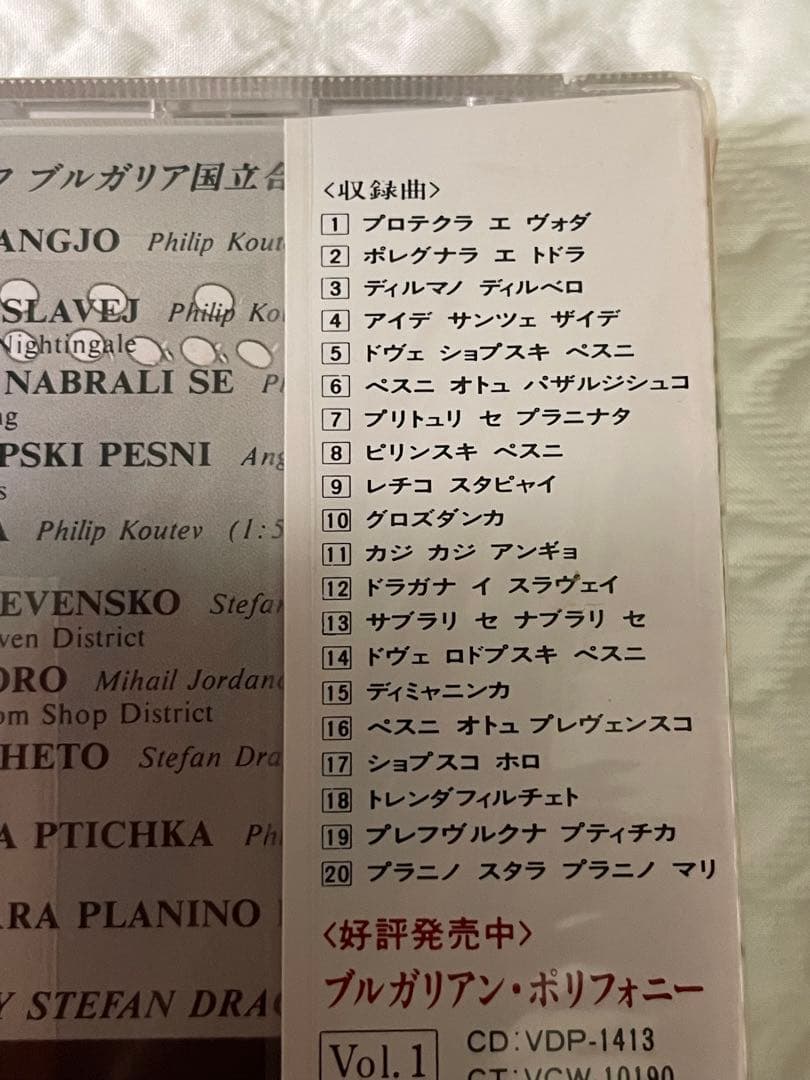 ブルガリア国立合
ANGJO Philip Kout
SLAVEJ Philip Ko
Nightingale
NABRALI SE
PSKI PESNI Ang
Philip Koutev (1:5
EVENSKO Stefan
ven District
ORO Mihail Jordano
om Shop District
HETO Stefan Dra
A PTICHKA Ph
ARA PLANINO
Y STEFAN DRAG
<収録曲>
1 プロテクラ エ ヴォダ
2 ポレグナラ エ トドラ
3 ディルマノ ディルベロ
4 アイデ サンツェ ザイデ
5 ドヴェ ショプスキ ペスニ
6 ペスニ オトュ パザルジシュコ
7 プリトュリ セ プラニナタ
8 ピリンスキ ペスニ
9 レチコ スタピャイ
10 グロズダンカ
11 カジ カジ アンギョ
12 ドラガナ イ スラヴェイ
13 サブラリ セ ナブラリ セ
14 ドヴェ ロドプスキ ペスニ
15 ディミャニンカ
16 ペスニ オトュ プレヴェンスコ
17 ショプスコ ホロ
18 トレンダフィルチェト
19 プレフヴルクナ プティチカ
20 プラニノ スタラ プラニノ マリ
<好評発売中>
ブルガリアン・ポリフォニー
Vol.1 CD:VDP-1413
CT:VCW-10190